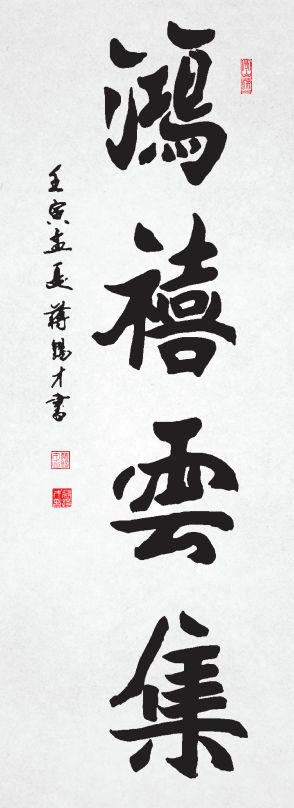 鴻禧雲集
壬寅孟夏蔣錫才書